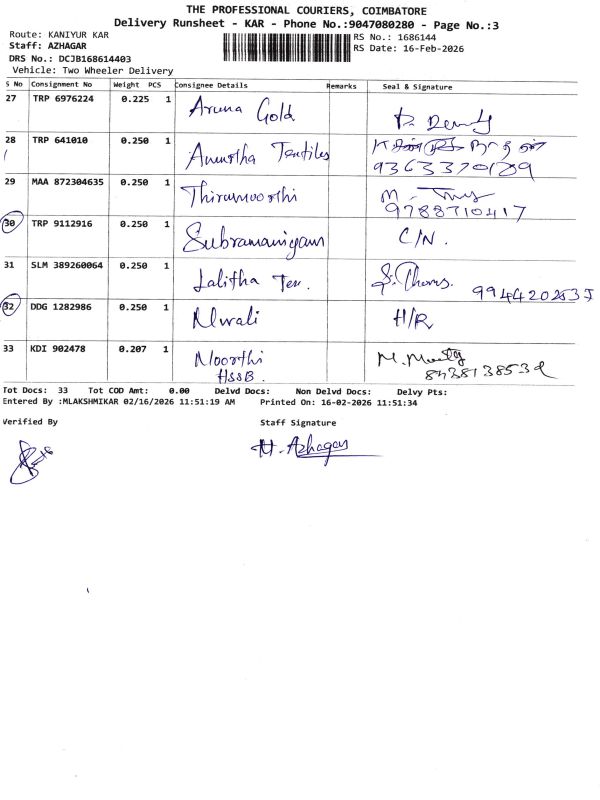 THE PROFESSIONAL COURIERS, COIMBATORE
Delivery Runsheet - KAR - Phone No.:9047080280 - Page No.:3
Route: KANIYUR KAR
RS No.: 1686144
Staff: AZHAGAR
RS Date: 16-Feb-2026
DRS No.: DCJB168614403
Vehicle: Two Wheeler Delivery
S No Consignment No Weight PCS Consignee Details Remarks Seal & Signature
27 TRP 6976224 0.225 1 Aruna Gold
28 TRP 641010 0.250 1 Amurtha Textiles
9363370189
29 MAA 872304635 0.250 1 Thirumoorthi M.
9788710417
30 TRP 9112916 0.250 1 Subramaniyam C/N.
31 SLM 389260064 0.250 1 Lalitha Tex.
32 DDG 1282986 0.250 1 H/R
33 KDI 902478 0.207 1 Moorthi
HSSB.
Tot Docs: 33 Tot COD Amt: 0.00 Delvd Docs: Non Delvd Docs: Delvy Pts:
Entered By :MLAKSHMIKAR 02/16/2026 11:51:19 AM Printed On: 16-02-2026 11:51:34
Verified By Staff Signature
H. Azhagar